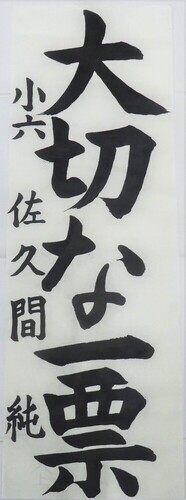 大切な一票
小六 佐久間 純